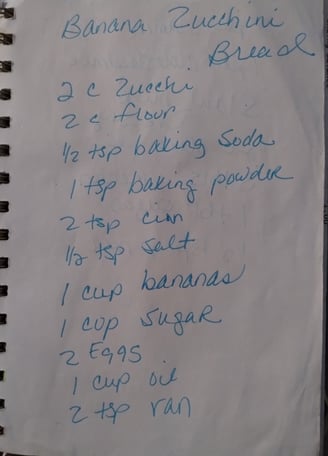 Banana Zucchini
Bread
2 c Zucchi
2 c flour
1/2 tsp baking Soda
1 tsp baking powder
2 tsp cinn
1/2 tsp salt
1 cup bananas
1 cup sugar
2 Eggs
1 cup oil
2 tsp van